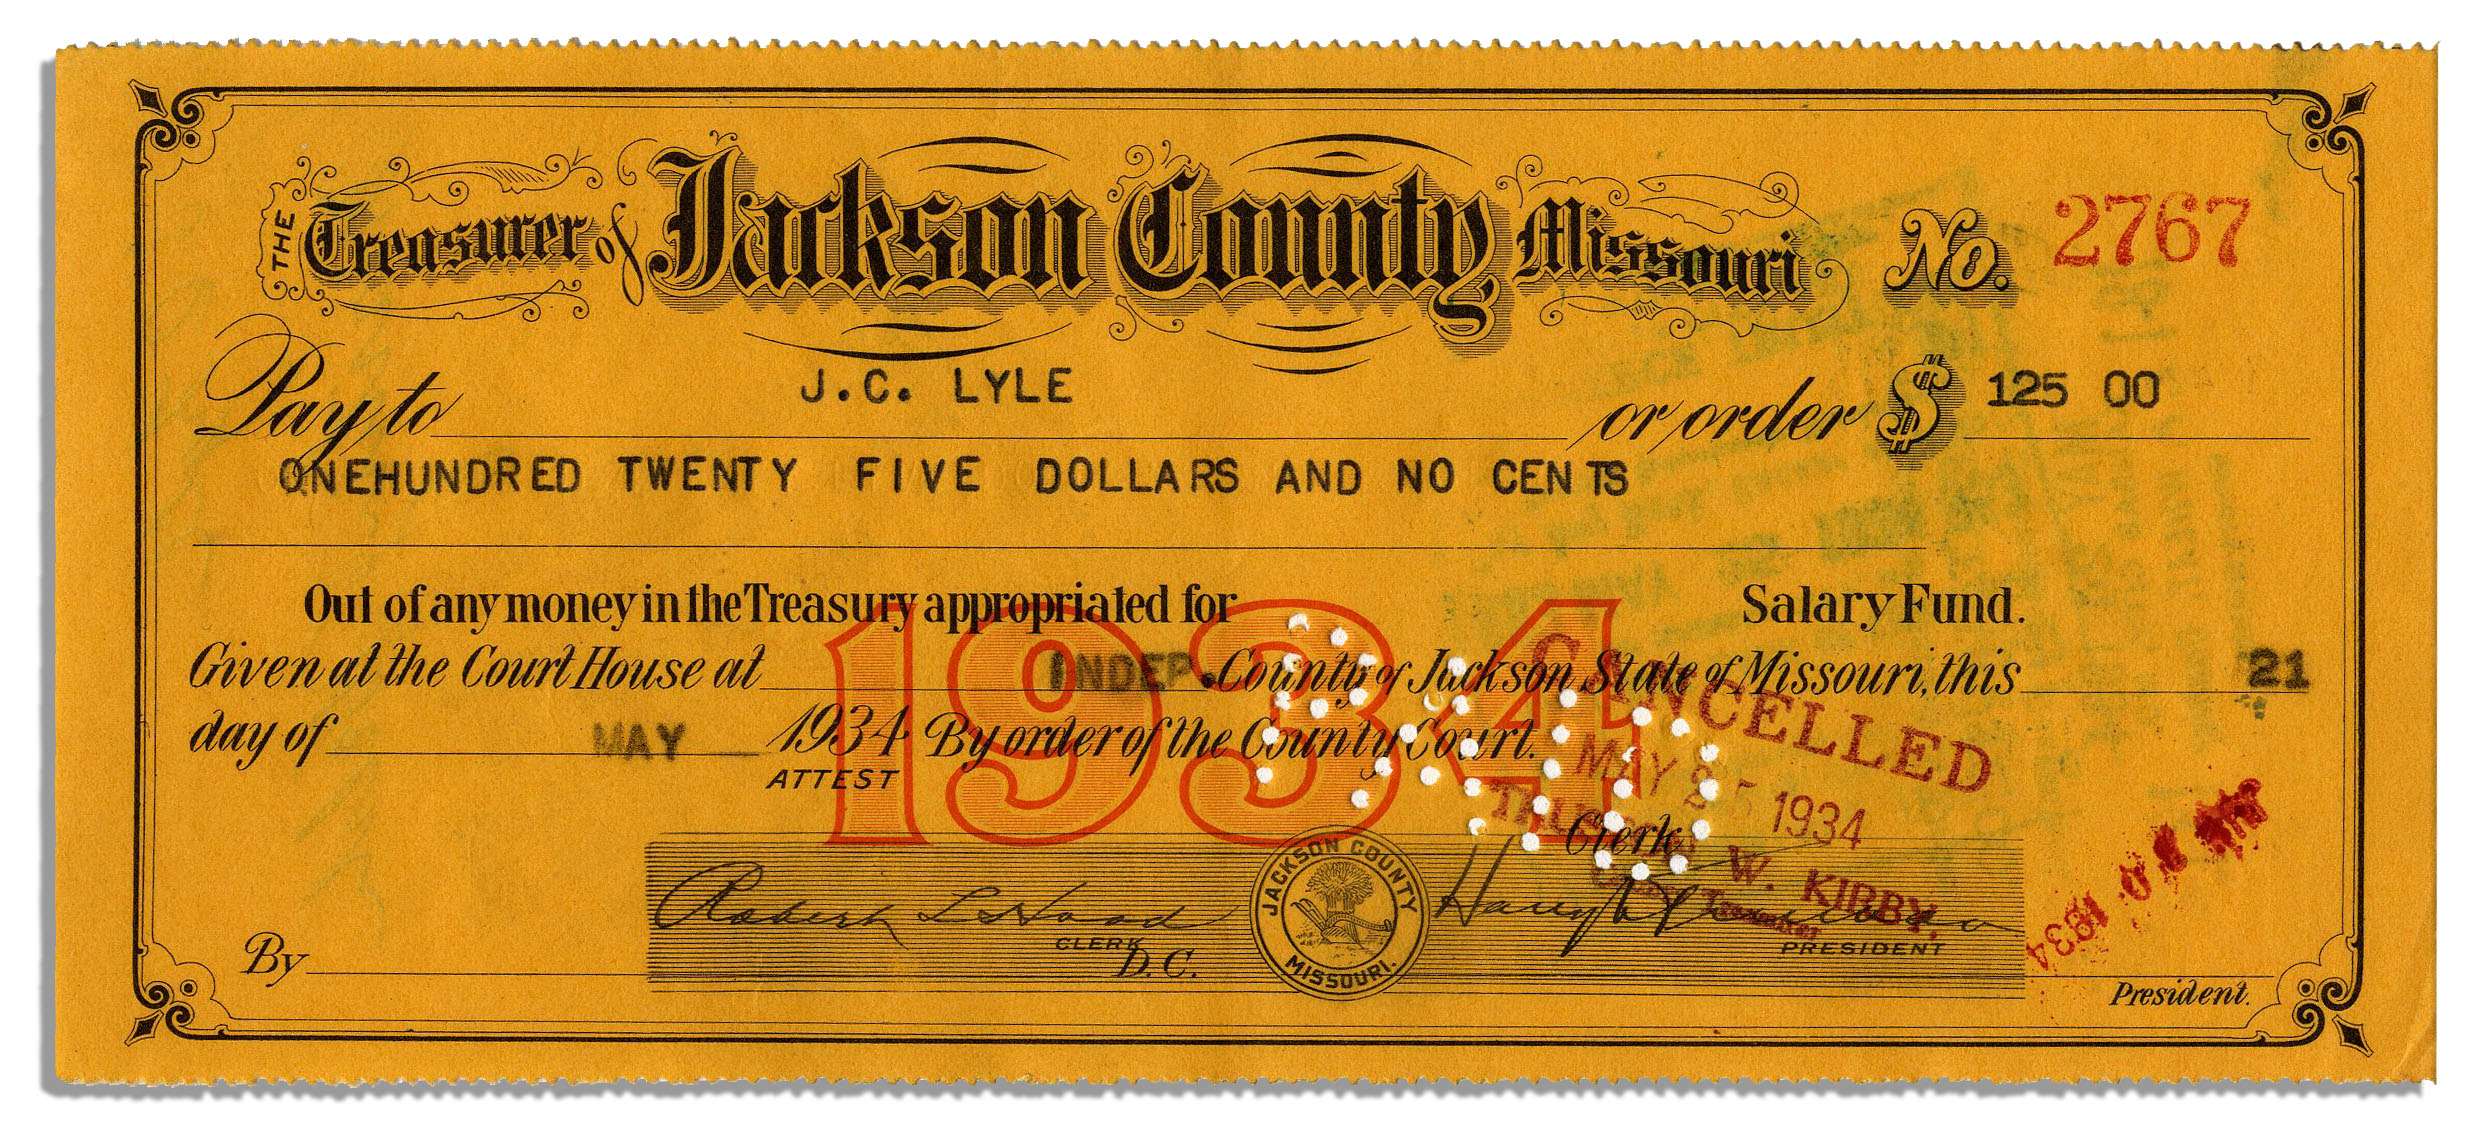 THE Treasurer of Jackson County Missouri No. 2767
Pay to J.C. LYLE or order $ 125 00
ONEHUNDRED TWENTY FIVE DOLLARS AND NO CENTS
Out of any money in the Treasury appropriated for Salary Fund.
1934
Given at the Court House at INDEP. County of Jackson State of Missouri, this 21
day of MAY 1934 By order of the County Court.
ATTEST
Clerk
CANCELLED
MAY 25 1934
W. KIRBY,
County Treasurer
PAID
1934
Robert L Hood
CLERK
JACKSON COUNTY
MISSOURI.
Harry S Truman
PRESIDENT
By D.C.
President.